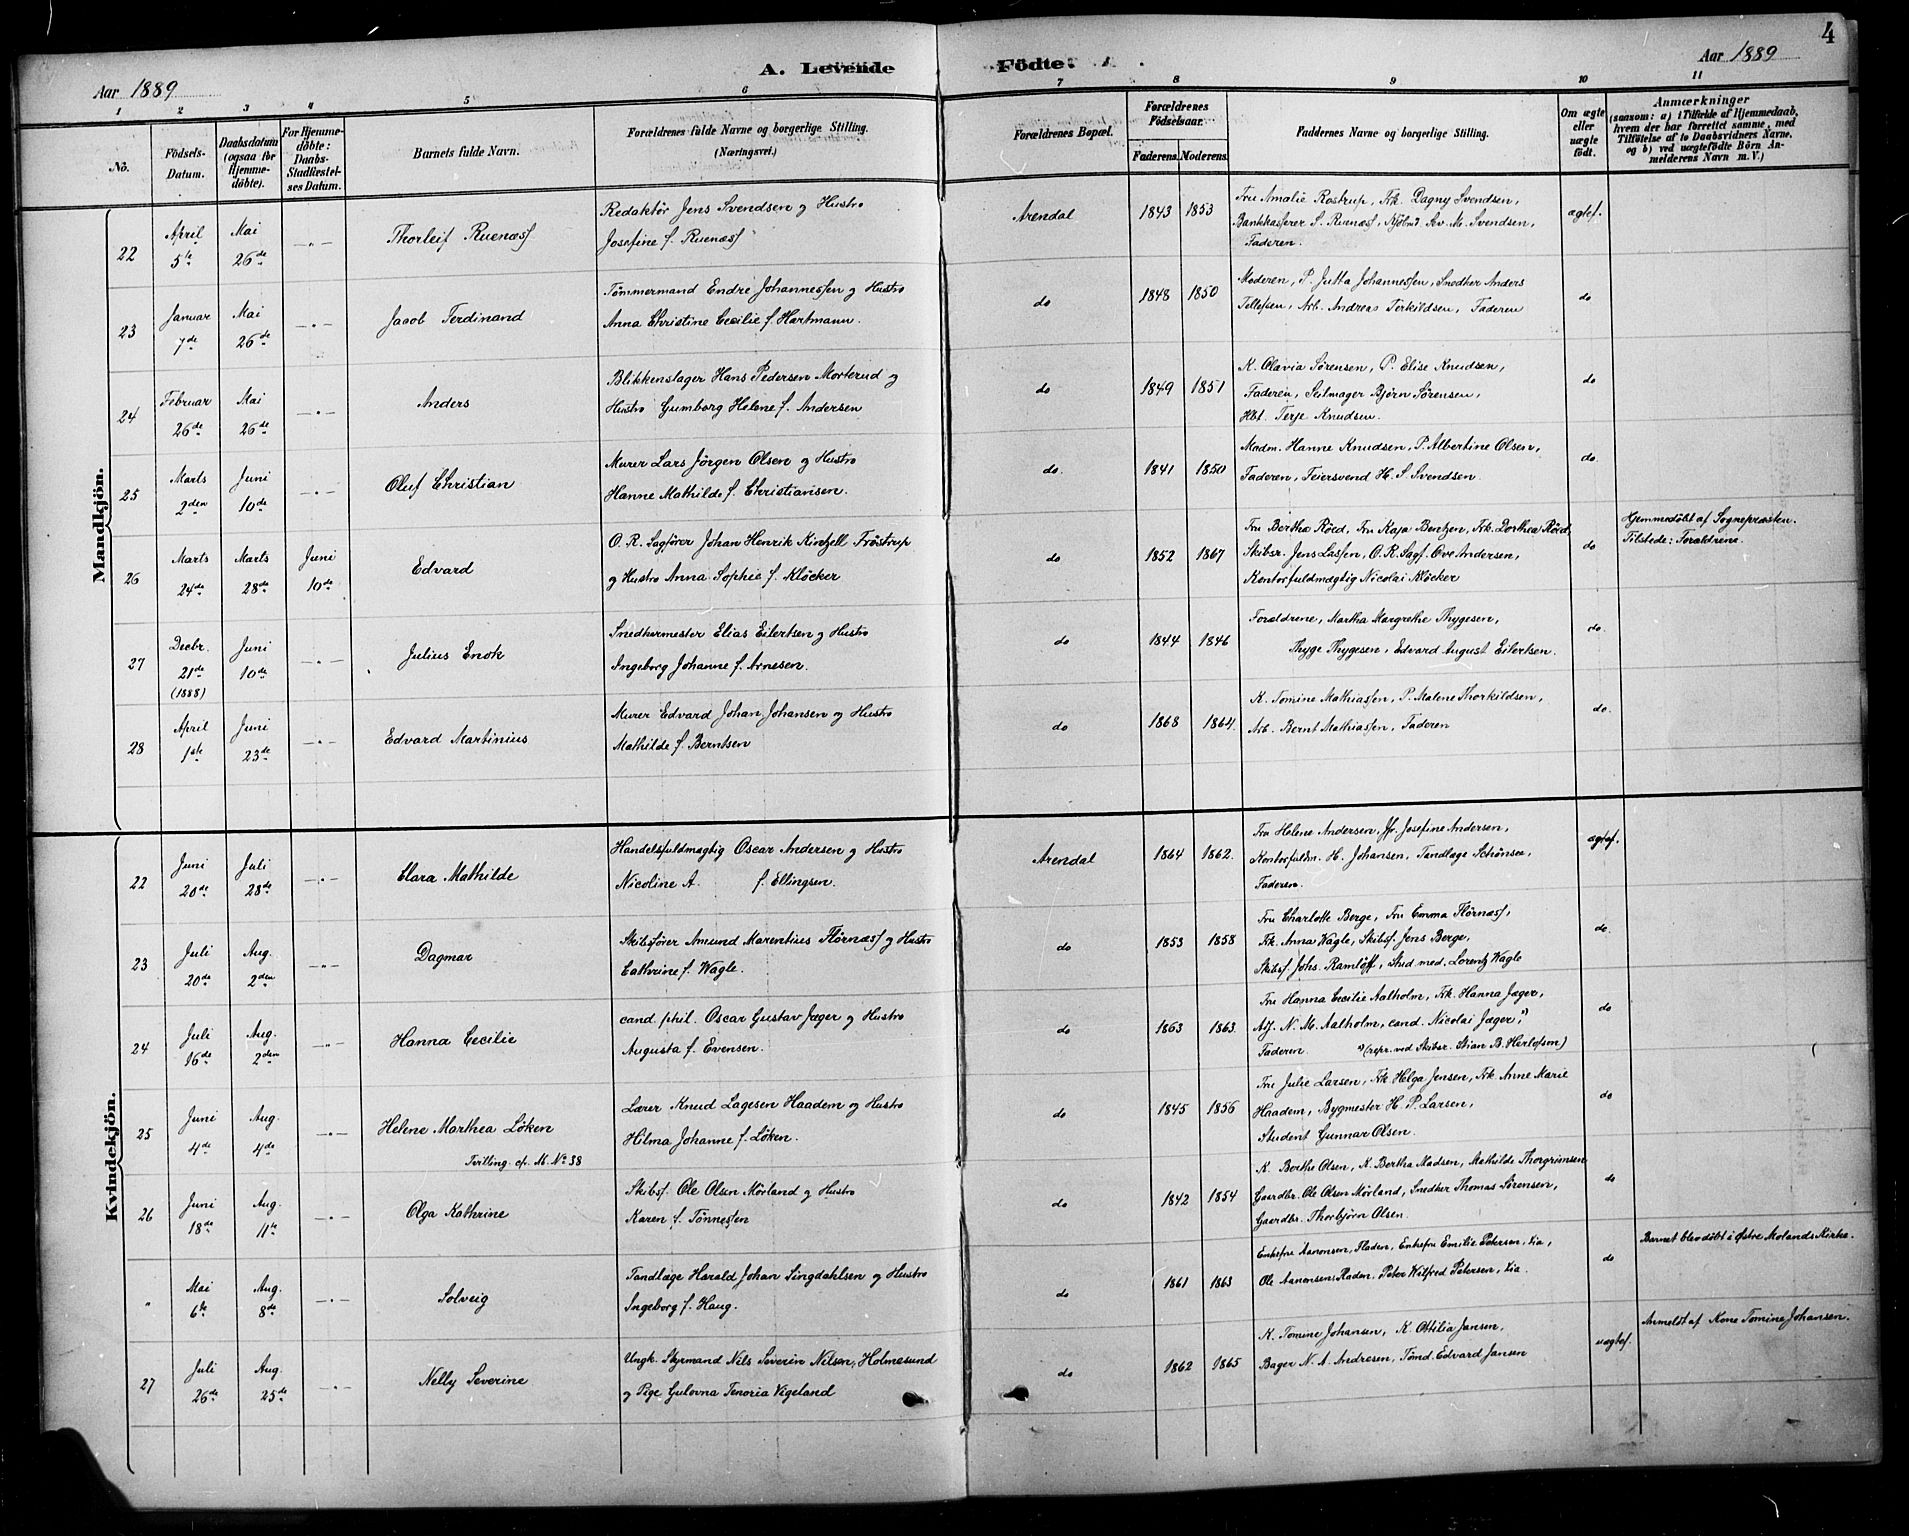 4
A. Levende Födte.
Aar 1889
Aar 1889
1 2 3 4 5 6 7 8 9 10 11
No.
Födsels-
Datum.
Daabsdatum
(ogsaa for
Hjemme-
döbte).
For Hjemme-
döbte:
Daabs-
Stadfæstel-
ses Datum.
Barnets fulde Navn.
Forældrenes fulde Navne og borgerlige Stilling.
(Næringsvei.)
Forældrenes Bopæl.
Forældrenes
Födselsaar.
Faderens. Moderens.
Faddernes Navne og borgerlige Stilling.
Om ægte
eller
uægte
født.
Anmærkninger
(saasom: a) i Tilfælde af Hjemmedaab,
hvem der har forrettet samme, med
Tilföielse af to Daabsvidners Navne.
og b) ved uægtefödte Börn An-
melderens Navn m. V.)
Mandkjön.
22 April 5te Mai 26de Thorleif Ruenæss
Redaktør Jens Svendsen og Hustro
Josefine f. Ruenæss
Arendal 1843 1853
Fru Amalie Rostrup, Frk. Dagny Svendsen,
Bankkasserer S. Ruenæss, Kjøbmd Sv. M. Svendsen,
Faderen.
ægtef.
23 Januar 7de Mai 26de Jacob Ferdinand
Tømmermand Endre Johannessen og Hustro
Anna Christine Cecilie f. Hartmann.
do 1848 1850
Moderen, P. Jutta Johannessen, Snedker Anders
Tellefsen, Arb. Andreas Terkildsen, Faderen
do
24 Februar 26de Mai 26de Anders
Blikkenslager Hans Pedersen Morterud og
Hustro Gumborg Helene f. Andersen
do 1849 1851
K. Olavia Sørensen, P. Elise Knudsen,
Faderen, Seilmager Bjørn Sørensen,
Hbt. Terje Knudsen.
do
25 Marts 2den Juni 10de Oluf Christian
Murer Lars Jörgen Olsen og Hustro
Hanne Mathilde f. Christiansen.
do. 1841 1850
Madm. Hanne Knudsen, P. Albertine Olsen,
Faderen, Feiersvend H. S. Svendsen.
do.
26 Marts 24de Marts 28de Juni 10de Edvard
O. R. Sagfører Johan Henrik Kintzell Frøstrup
og Hustro Anna Sophie f. Kløcker
do 1852 1867
Fru Bertha Röed, Fru Kaja Bentzen, Frk. Dorthea Röed,
Skibsr. Jens Lassen, O. R. Sagf. Ove Andersen,
Kontorfuldmægtig Nicolai Kløcker
do
Hjemmedøbt af Sognepræsten.
Tilstede: Forældrene.
27 Decbr. 21de (1888) Juni 10de Julius Enok
Snedkermester Elias Eilertsen og Hustro
Ingeborg Johanne f. Arnesen.
do 1844 1846
Forældrene, Martha Margrethe Thygesen,
Thyge Thygesen, Edvard August Eilertsen.
do.
28 April 1ste Juni 23de Edvard Martinius
Murer Edvard Johan Johansen og Hustro
Mathilde f. Berntsen
do 1868 1864.
K. Tomine Mathiassen, P. Malene Thorkildsen,
Arb. Bernt Mathiassen, Faderen
do.
Kvindekjön.
22 Juni 20de Juli 28de Clara Mathilde
Handelsfuldmægtig Oscar Andersen og Hustro
Nicoline A. f. Ellingsen.
Arendal 1864 1862.
Fru Helene Andersen, Jfr. Josefine Andersen,
Kontorfuldm. H. Johansen, Tandlæge Schönsee,
Faderen.
ægtef.
23 Juli 20de Aug. 2den Dagmar
Skibsfører Amund Marentius Flørnæss og Hustro
Cathrine f. Wagle.
do 1853 1858
Fru Charlotte Berge, Fru Emma Flørnæss,
Frk. Anna Wagle, Skibsf. Jens Berge,
Skibsf. Johs. Ramløff, Stud med. Lorentz Wagle
do.
24 Juli 16de Aug. 2den Hanna Cecilie
cand. phil. Oscar Gustav Jæger og Hustro
Augusta f. Evensen.
do 1863 1863.
Fru Hanna Cecilie Aalholm, Frk. Hanna Jæger,
Adj. N. M. Aalholm, cand. Nicolai Jæger,*)
Faderen. *) (repr. ved Skibsr. Stian B. Herlofsen)
do
25 Juni 4de Aug. 4de Helene Marthea Löken
Tvilling cfr. M. No 38
Lærer Knud Lagesen Haadem og Hustro
Hilma Johanne f. Löken.
do 1845 1856
Fru Julie Larsen, Frk. Helga Jensen, Frk. Anne Marie
Haadem, Bygmester H. P. Larsen,
Student Gunnar Olsen.
do
26 Juni 18de Aug. 11te Olga Kathrine
Skibsf. Ole Olsen Mörland og Hustro
Karen f. Tönnesen
do 1842 1854
K. Berthe Olsen, K. Bertha Madsen, Mathilde Thorgrimsen
Gaardbr. Ole Olsen Mörland, Snedker Thomas Sörensen,
Gaardbr. Thorbjörn Olsen.
do
" Mai 6te Aug. 8de Solveig
Tandlæge Harald Johan Singdahlsen og Hustro
Ingeborg f. Haug.
do 1861 1863
Enkefru Aanonsen, Fladen, Enkefru Emilie Petersen, Lia,
Ole Aanonsen, Fladen, Peter Wilfred Petersen, Lia.
do
Barnet blev döbt i Østre Molands Kirke.
27 Juli 26de Aug. 25de Nelly Severine
Ungk. Styrmand Nils Severin Nilsen, Holmesund
og Pige Gulovna Tenoria Vigeland
do 1862 1865
K. Tomine Johansen, K. Ottilia Jansen,
Bager N. A. Andresen, Tømd. Edvard Jansen
uægtef.
Anmeldt af Kone Tomine Johansen.